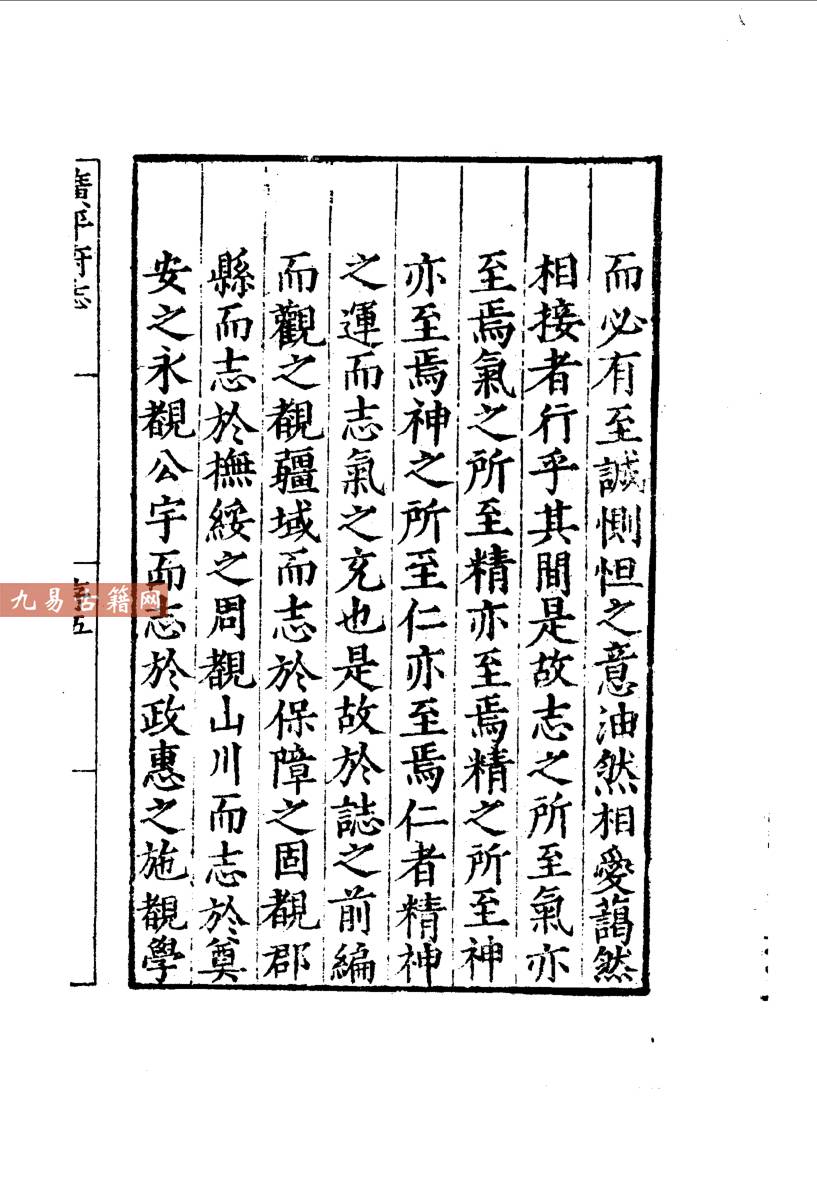 而必有至誠惻怛之意油然相愛藹然
相接者行乎其間是故志之所至氣亦
至焉氣之所至精亦至焉精之所至神
亦至焉神之所至仁亦至焉仁者精神
之運而志氣之充也是故於誌之前編
而觀之觀疆域而志於保障之固觀郡
縣而志於撫綏之周觀山川而志於奠
安之永觀公宇而志於政惠之施觀學
廣平府志
序五
九易古籍网